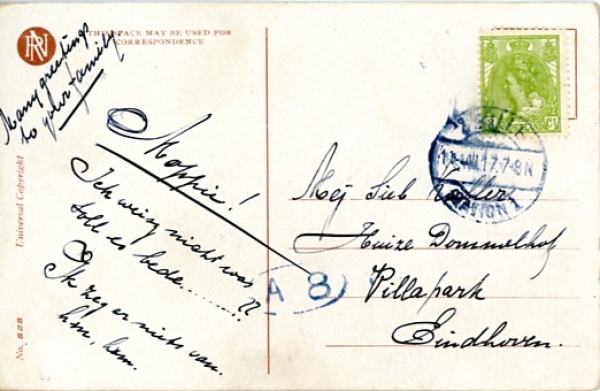 THIS SPACE MAY BE USED FOR
CORRESPONDENCE
Many greetings
to your family
Moppie!
Ich weisz nicht was
soll es bede........??
Ik zeg er niets van.
hm, hm.
Universal Copyright
No. 828
A 8
17.7-8N
STATION 1
Mej
Huize Dommelhof
Villapark
Eindhoven.